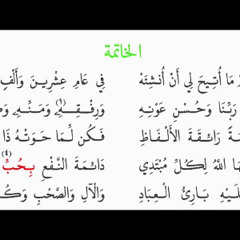 الخاتمة
مَا أُتِيحَ لِي أَنْ أُنْشِئَهُ فِي عَامِ عِشْرِينَ وَأَلْفٍ
رَبِّنَا وَحُسْنِ عَوْنِهِ وَرِفْقِهِ وَمَنِّهِ
رَائِقَةَ الْأَلْفَاظِ فَكُنْ لِمَا حَوَتْهُ ذَا
اللهُ لِكُلِّ مُبْتَدِي دَائِمَةَ النَّفْعِ بِحُبِّ (٤)
بَارِئُ الْعِبَادِ وَالْآلِ وَالصَّحْبِ